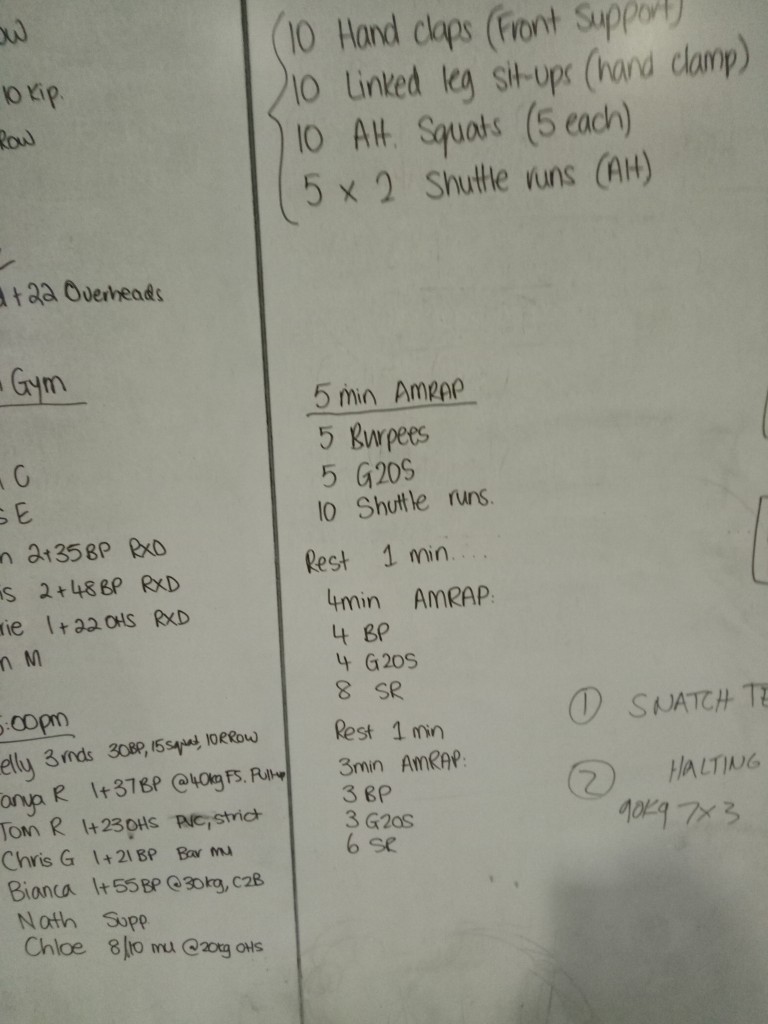 10 Kip.
Row
+22 Overheads
Gym
C
E
2+35BP RXD
2+48BP RXD
1+22 OHS RXD
M
:00pm
elly 3rnds 30BP, 15 Squat, 10RROW
anya R 1+37BP @40kg FS.
Tom R 1+23OHS PVC, strict
Chris G 1+21BP Bar mu
Bianca 1+55BP @30kg, C2B
Nath Supp
Chloe 8/10 mu @20kg OHS
10 Hand claps (Front Support)
10 Linked leg sit-ups (hand clamp)
10 Alt. Squats (5 each)
5 x 2 Shuttle runs (Alt)
5 min AMRAP
5 Burpees
5 G2OS
10 Shuttle runs.
Rest 1 min....
4min AMRAP:
4 BP
4 G2OS
8 SR
Rest 1 min
3min AMRAP:
3 BP
3 G2OS
6 SR
① SNATCH TE
② HALTING
90Kg 7x3